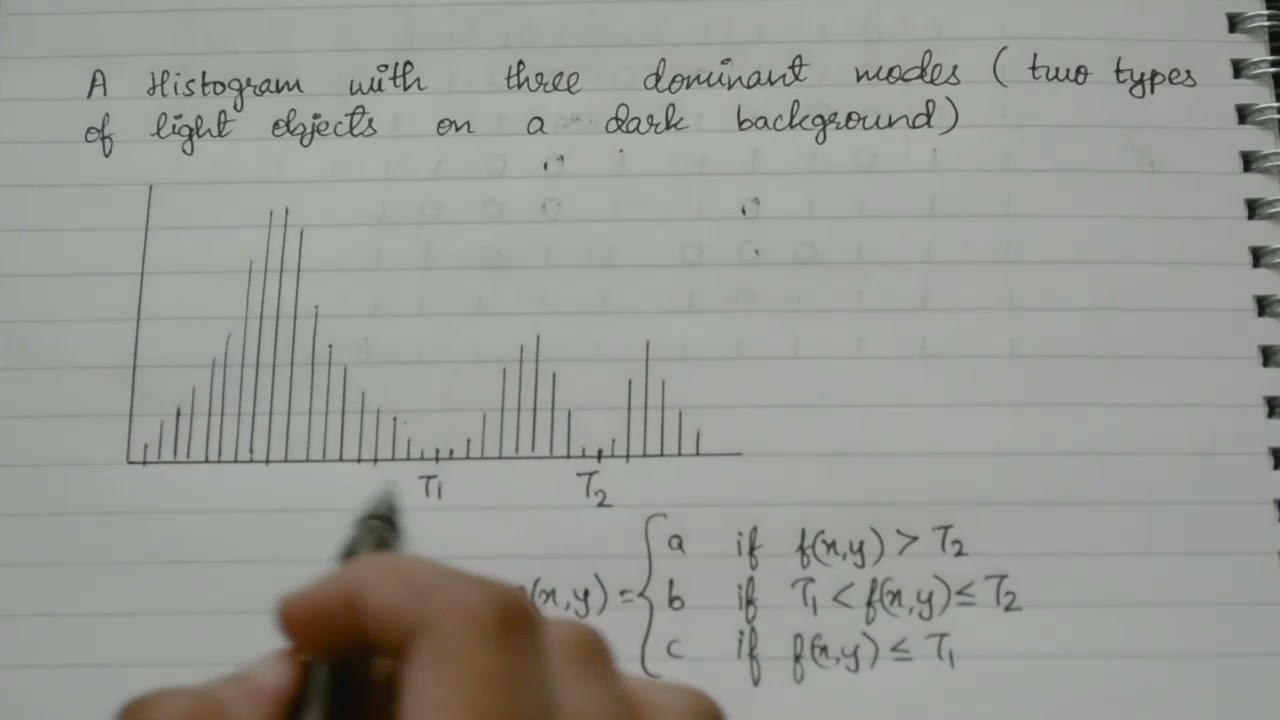 A Histogram with three dominant modes ( two types
of light objects on a dark background)
T1 T2
a if f(x,y) > T2
(x,y) = { b if T1 < f(x,y) ≤ T2
c if f(x,y) ≤ T1